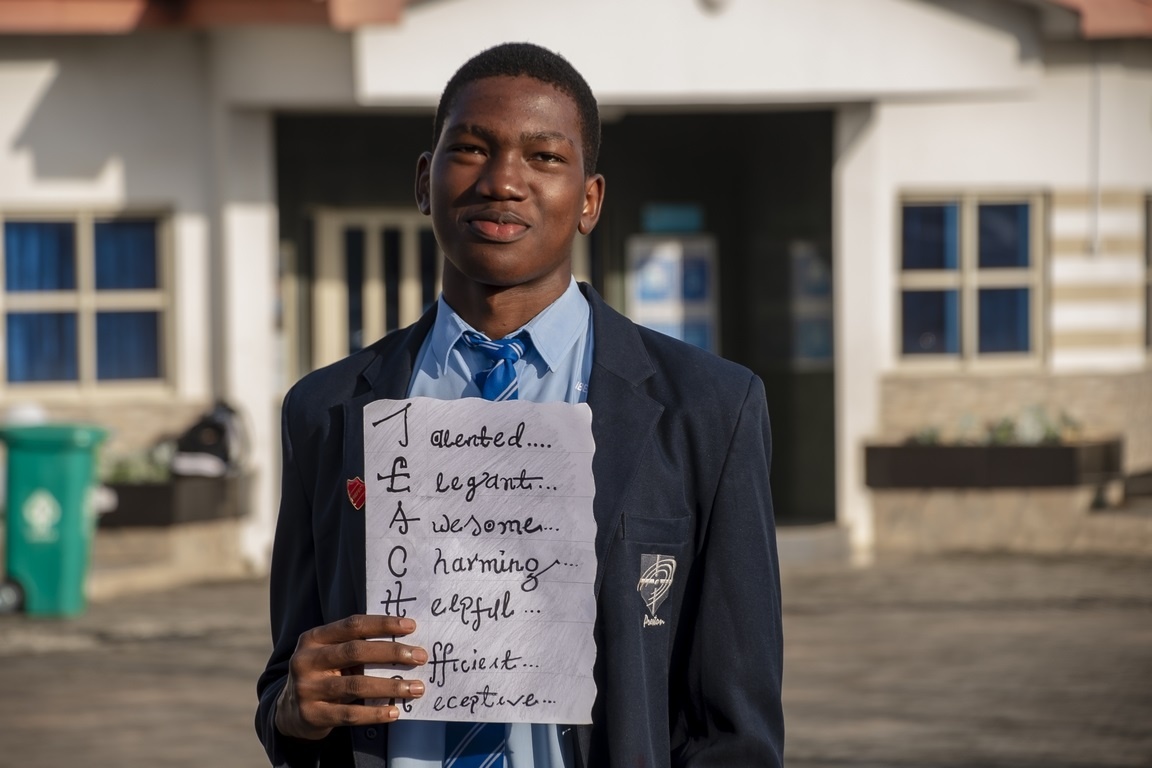 Talented....
Elegant...
Awesome...
Charming...
Helpful ...
fficient...
Receptive...